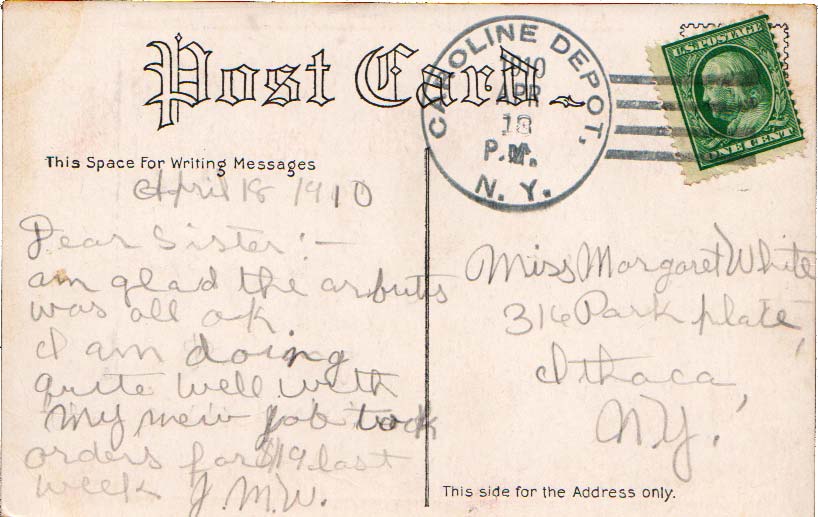 Post Card
CAROLINE DEPOT,
1910
APR
18
P.M.
N. Y.
U.S. POSTAGE
ONE CENT
This Space For Writing Messages
April 18 1910
Dear Sister:-
am glad the arbutus
was all ok.
I am doing
quite well with
my new job took
orders for $19 last
week J.M.W.
Miss Margaret White
316 Park place,
Ithaca,
N.Y.
This side for the Address only.